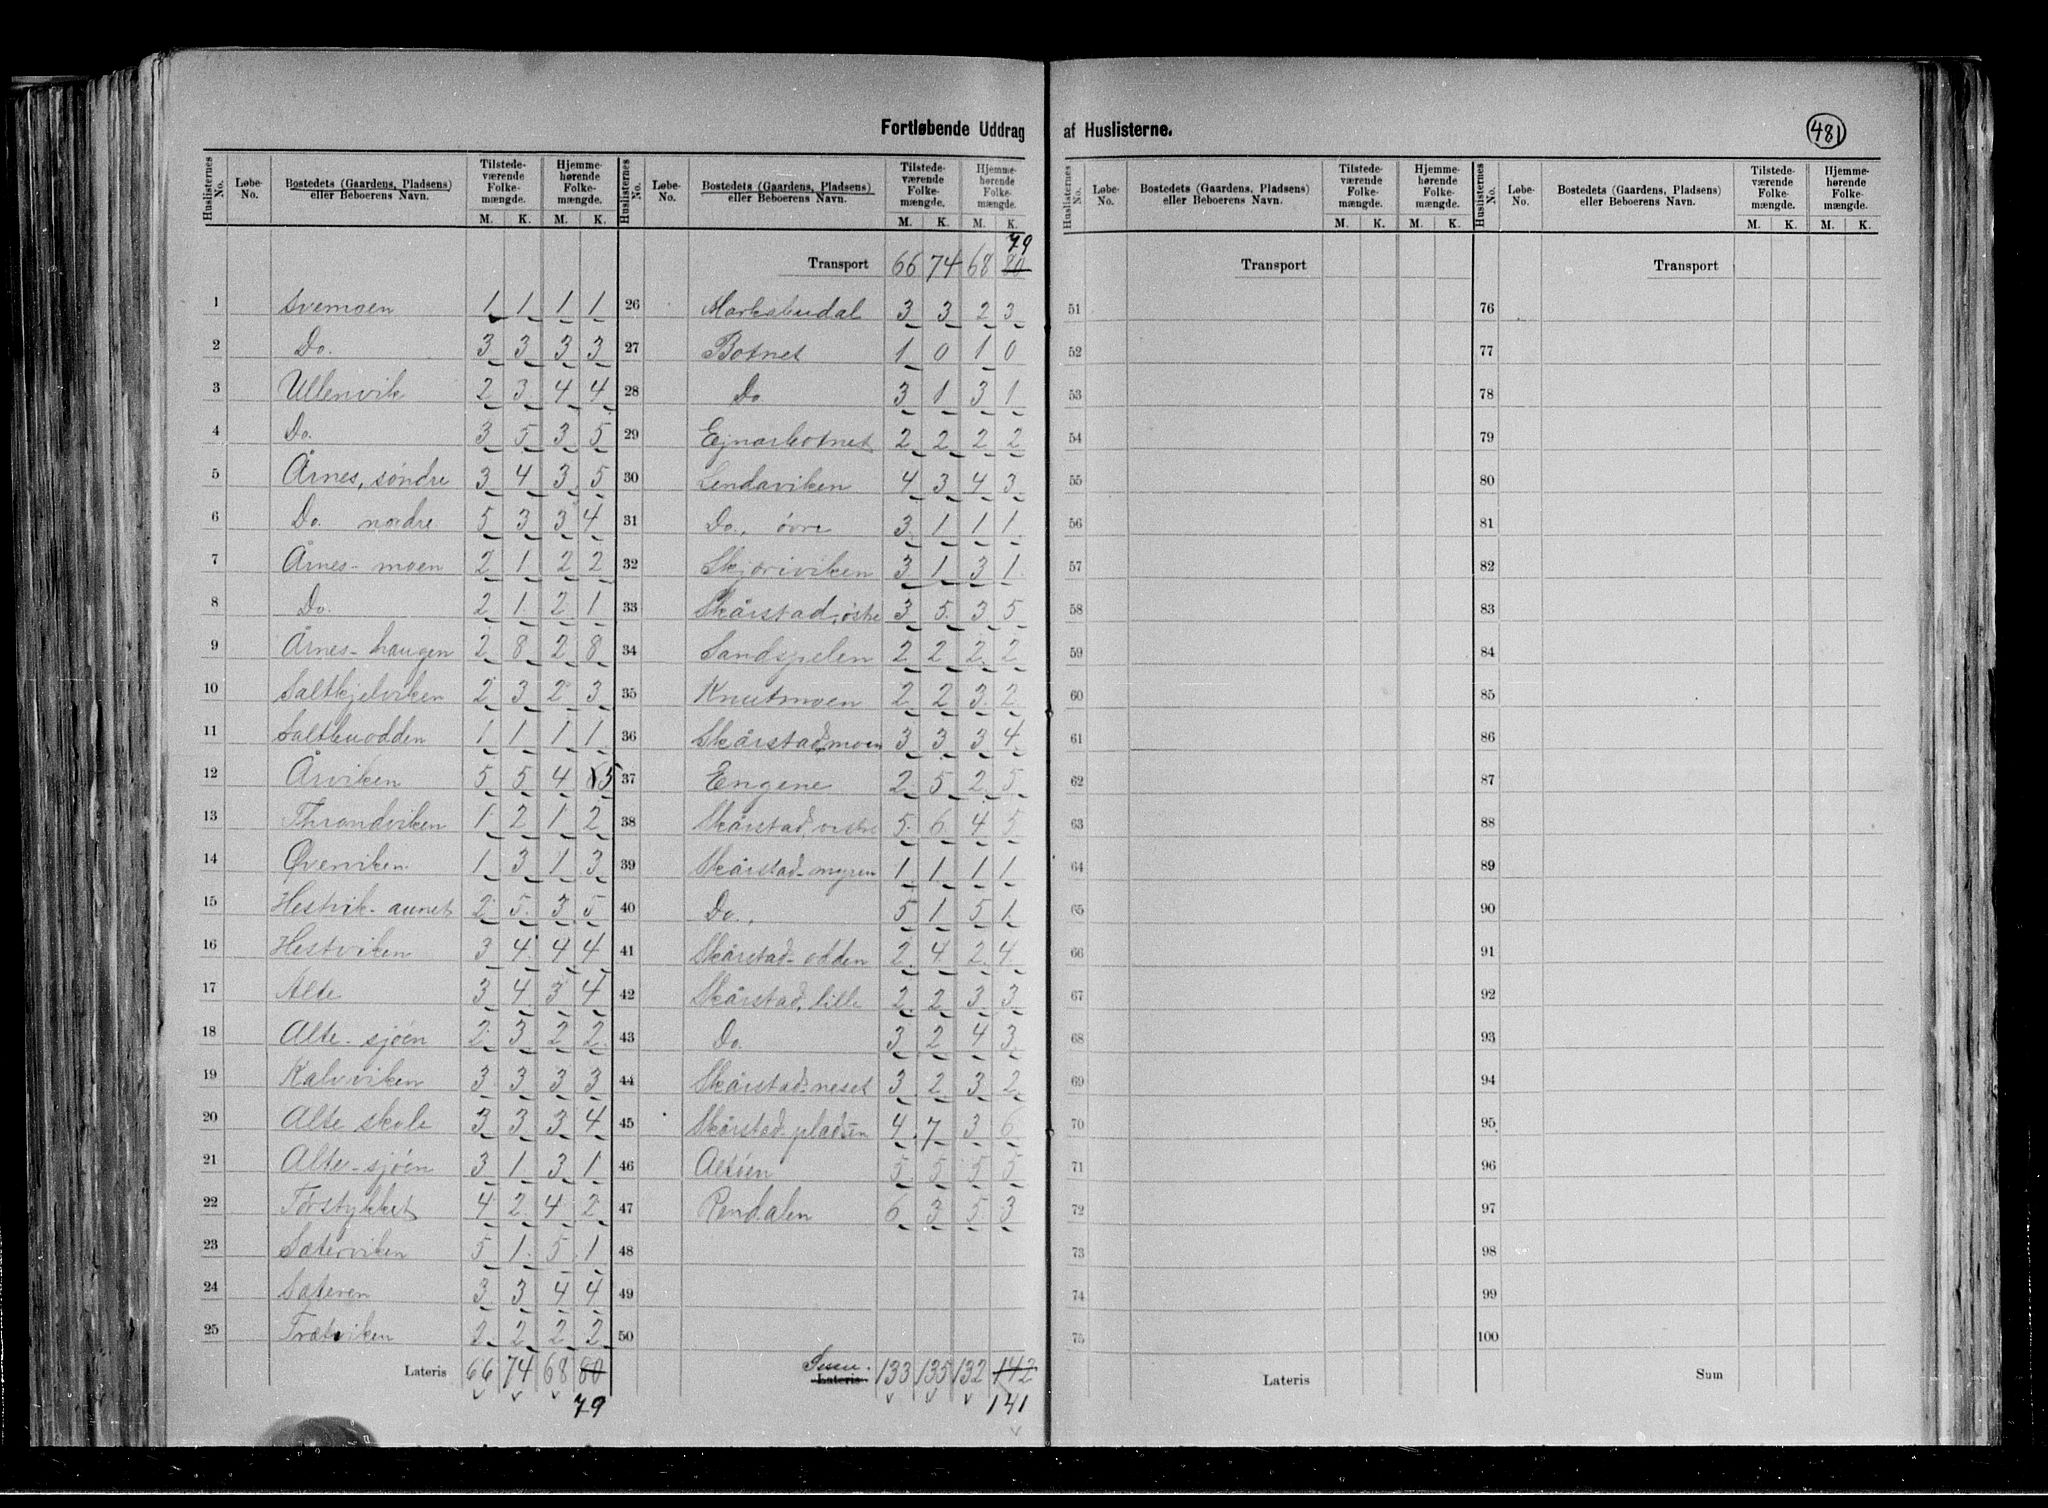 Fortløbende Uddrag af Huslisterne.
481
Huslisternes No. Løbe-No. Bostedets (Gaardens, Pladsens) eller Beboerens Navn. Tilstedeværende Folkemængde. M. K. Hjemmehørende Folkemængde. M. K.
1 Svemoen 1 1 1 1
2 Do. 3 3 3 3
3 Ullenvik 2 3 4 4
4 Do. 3 5 3 5
5 Årnes, søndre 3 4 3 5
6 Do. nordre 5 3 3 4
7 Årnes-moen 2 1 2 2
8 Do. 2 1 2 1
9 Årnes-haugen 2 8 2 8
10 Saltkjelviken 2 3 2 3
11 Saltbuodden 1 1 1 1
12 Årviken 5 5 4 5
13 Throndviken 1 2 1 2
14 Øverviken 1 3 1 3
15 Hestvik-aunet 2 5 3 5
16 Hestviken 3 4 4 4
17 Alte 3 4 3 4
18 Alte-sjøen 2 3 2 2
19 Kalvviken 3 3 3 3
20 Alte skole 3 3 3 4
21 Alte-sjøen 3 1 3 1
22 Tørstykket 4 2 4 2
23 Sæterviken 5 1 5 1
24 Sæteren 3 3 4 4
25 Trætviken 2 2 2 2
Lateris 66 74 68 80
79
Huslisternes No. Løbe-No. Bostedets (Gaardens, Pladsens) eller Beboerens Navn. Tilstedeværende Folkemængde. M. K. Hjemmehørende Folkemængde. M. K.
79
Transport 66 74 68 80
26 Marksbudal 3 3 2 3
27 Botnet 1 0 1 0
28 Do 3 1 3 1
29 Ejnarbotnet 2 2 2 2
30 Lendaviken 4 3 4 3
31 Do., øvre 3 1 1 1
32 Skjøriviken 3 1 3 1
33 Skårstad, østre 3 5 3 5
34 Sandspelen 2 2 2 2
35 Knutmoen 2 2 3 2
36 Skårstadmoen 3 3 3 4
37 Engene 2 5 2 5
38 Skårstad vestre 5 6 4 5
39 Skårstad-myren 1 1 1 1
40 Do., 5 1 5 1
41 Skårstad-odden 2 4 2 4
42 Skårstad, lille 2 2 3 3
43 Do. 3 2 4 3
44 Skårstad-neset 3 2 3 2
45 Skårstad pladsen 4 7 3 6
46 Altøen 5 5 5 5
47 Rendalen 6 3 5 3
48
49
50
Sum. Lateris 133 135 132 142
141
Huslisternes No. Løbe-No. Bostedets (Gaardens, Pladsens) eller Beboerens Navn. Tilstedeværende Folkemængde. M. K. Hjemmehørende Folkemængde. M. K.
Transport
51
52
53
54
55
56
57
58
59
60
61
62
63
64
65
66
67
68
69
70
71
72
73
74
75
Lateris
Huslisternes No. Løbe-No. Bostedets (Gaardens, Pladsens) eller Beboerens Navn. Tilstedeværende Folkemængde. M. K. Hjemmehørende Folkemængde. M. K.
Transport
76
77
78
79
80
81
82
83
84
85
86
87
88
89
90
91
92
93
94
95
96
97
98
99
100
Sum